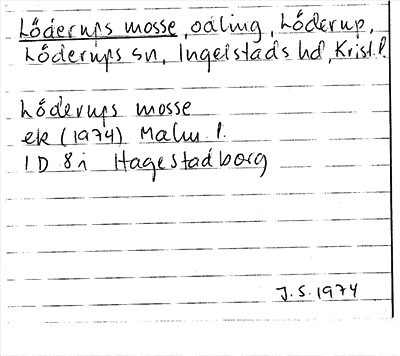 Löderups mosse, odling, Löderup,
Löderups sn, Ingelstads hd, Krist.l.
Löderups mosse
ek (1974) Malm. l.
1D 8i Hagestadborg
J.S. 1974